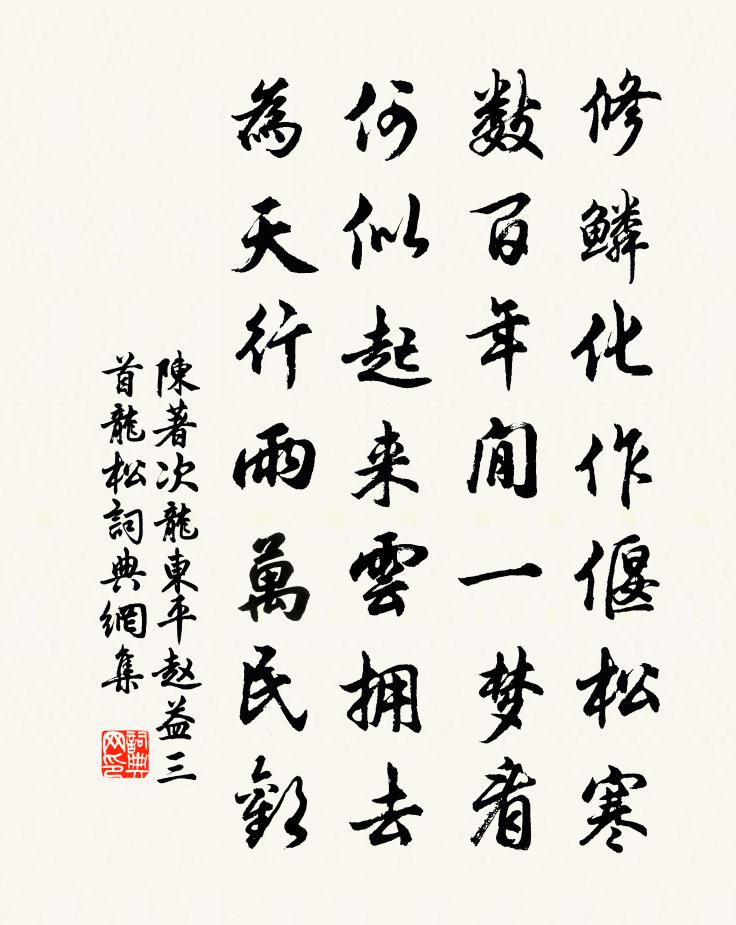 修鳞化作偃松寒
数百年间一梦看
何似起来雲拥去
為天行雨萬民歡
陳著次龍東平赵益三
首龍松詞典網集
詞典网印